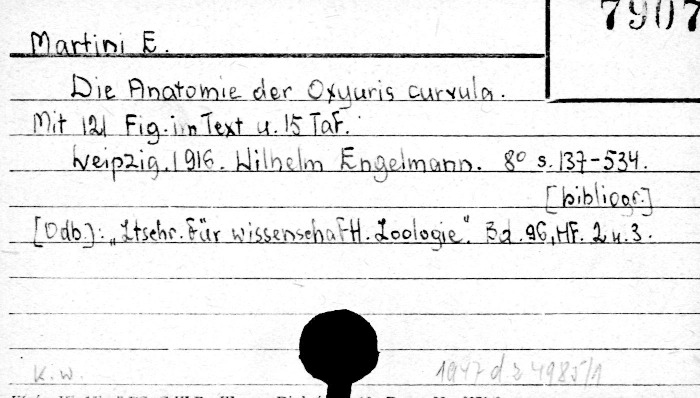 7907
Martini E.
Die Anatomie der Oxyuris curvula.
Mit 121 Fig. im Text u. 15 Taf.
Leipzig. 1916. Wilhelm Engelmann. 8° s. 137-534.
[bibliogr.]
[Odb.]: „Ztschr. für wissenschaftl. Zoologie". Bd. 96, Hf. 2 u. 3.
K.W. 1947 d z 4985/1